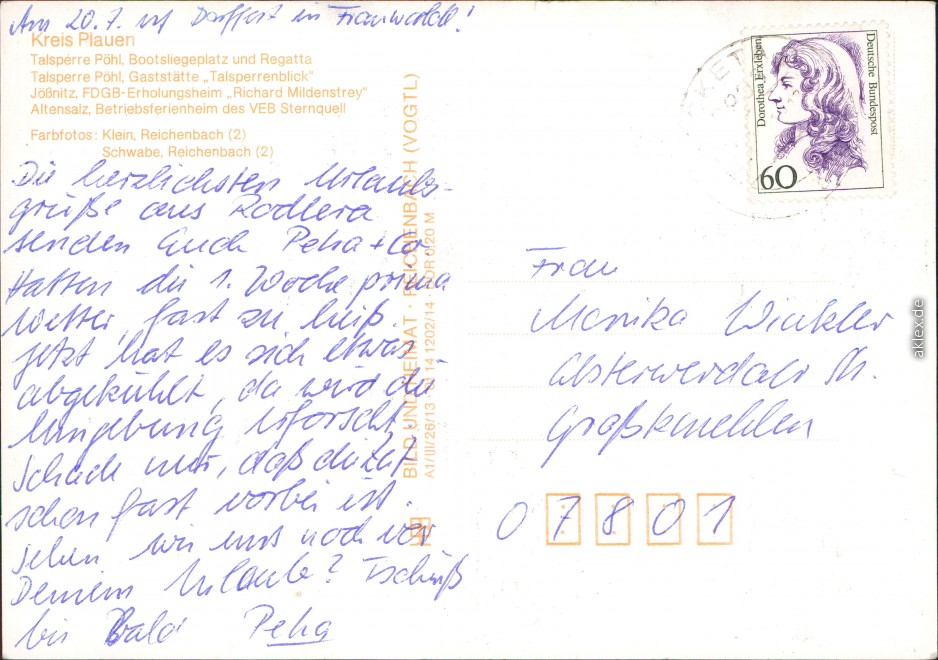 Am 20.7. ist Dorffest in Frauwalde!
Kreis Plauen
Talsperre Pöhl, Bootsliegeplatz und Regatta
Talsperre Pöhl, Gaststätte „Talsperrenblick"
Jößnitz, FDGB-Erholungsheim „Richard Mildenstrey"
Altensalz, Betriebsferienheim des VEB Sternquell
Farbfotos: Klein, Reichenbach (2)
Schwabe, Reichenbach (2)
Die herzlichsten Urlaubs-
grüße aus Rodlera
senden Euch Peha + Co
Hatten die 1. Woche prima
Wetter, fast zu heiß.
Jetzt hat es sich etwas
abgekühlt, da wird die
Umgebung erforscht.
Schade nur, daß die Zeit
schon fast vorbei ist.
Sehen wir uns noch vor
Deinem Urlaub? Tschüß
bis Bald Peha
BILD UND HEIMAT · REICHENBACH (VOGTL)
A1/III/26/13 141202/14 0,20 M
Dorothea Erxleben
Deutsche Bundespost
60
Frau
Monika Winkler
Elsterwerdaer Str.
Großkmehlen
07801
aklex.de